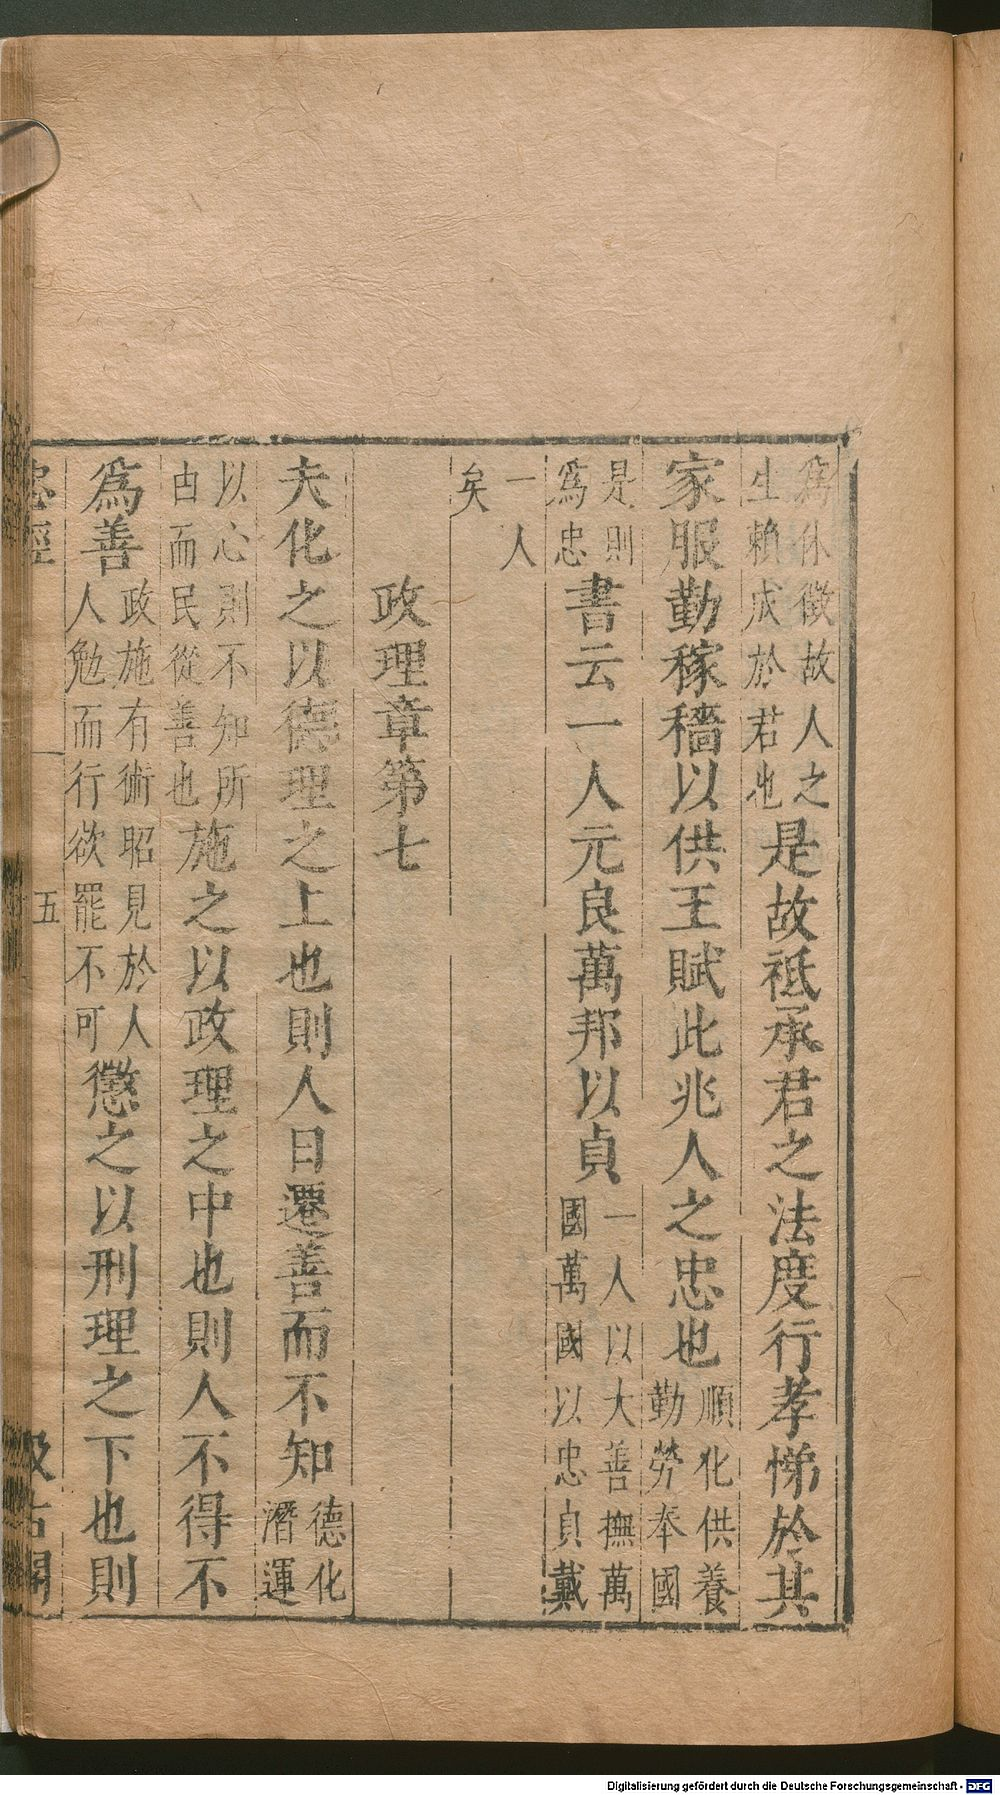 為休徵故人之
生賴成於君也是故祗承君之法度行孝悌於其
家服勤稼穡以供王賦此兆人之忠也順化供養
勤勞奉國
是則
為忠書云一人元良萬邦以貞一人以大善撫萬
國萬國以忠貞戴
一人
矣
政理章第七
夫化之以德理之上也則人日遷善而不知德化
潛運
以心則不知所
由而民從善也施之以政理之中也則人不得不
為善政施有術昭見於人
人勉而行欲罷不可懲之以刑理之下也則
忠經
五
汲古閣
Digitalisierung gefördert durch die Deutsche Forschungsgemeinschaft - DFG